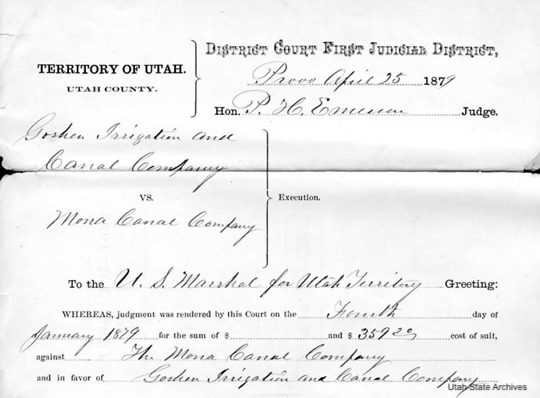 DISTRICT COURT FIRST JUDICIAL DISTRICT,
TERRITORY OF UTAH.
UTAH COUNTY.
Provo April 25 1879
Hon. P. H. Emerson Judge.
Goshen Irrigation and
Canal Company
VS.
Execution.
Mona Canal Company
To the U. S. Marshal for Utah Territory Greeting:
WHEREAS, judgment was rendered by this Court on the day of
January 1879 for the sum of $ and $ 359 cost of suit,
against The Mona Canal Company
and in favor of Goshen Irrigation and Canal Company
Utah State Archives